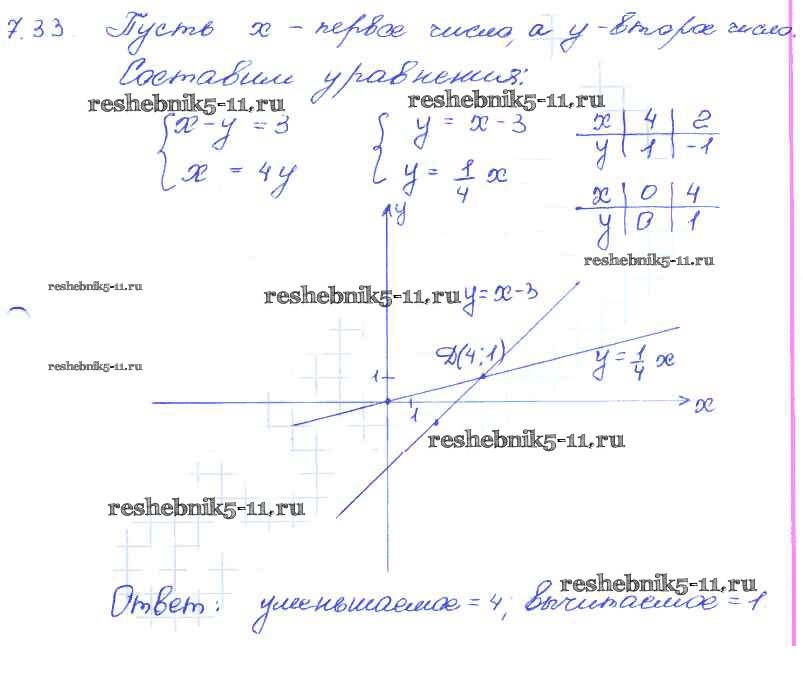 7.33 Пусть x – первое число, а y – второе число.
Составим уравнения:
reshebnik5-11.ru reshebnik5-11.ru
{ x – y = 3 { y = x – 3 x | 4 | 2
{ x = 4y { y = 1/4 x y | 1 | -1
x | 0 | 4
y | 0 | 1
y
reshebnik5-11.ru
reshebnik5-11.ru reshebnik5-11.ru y = x – 3
Д(4; 1) y = 1/4 x
reshebnik5-11.ru
1
1 x
reshebnik5-11.ru
reshebnik5-11.ru
reshebnik5-11.ru
Ответ: уменьшаемое = 4; вычитаемое = 1